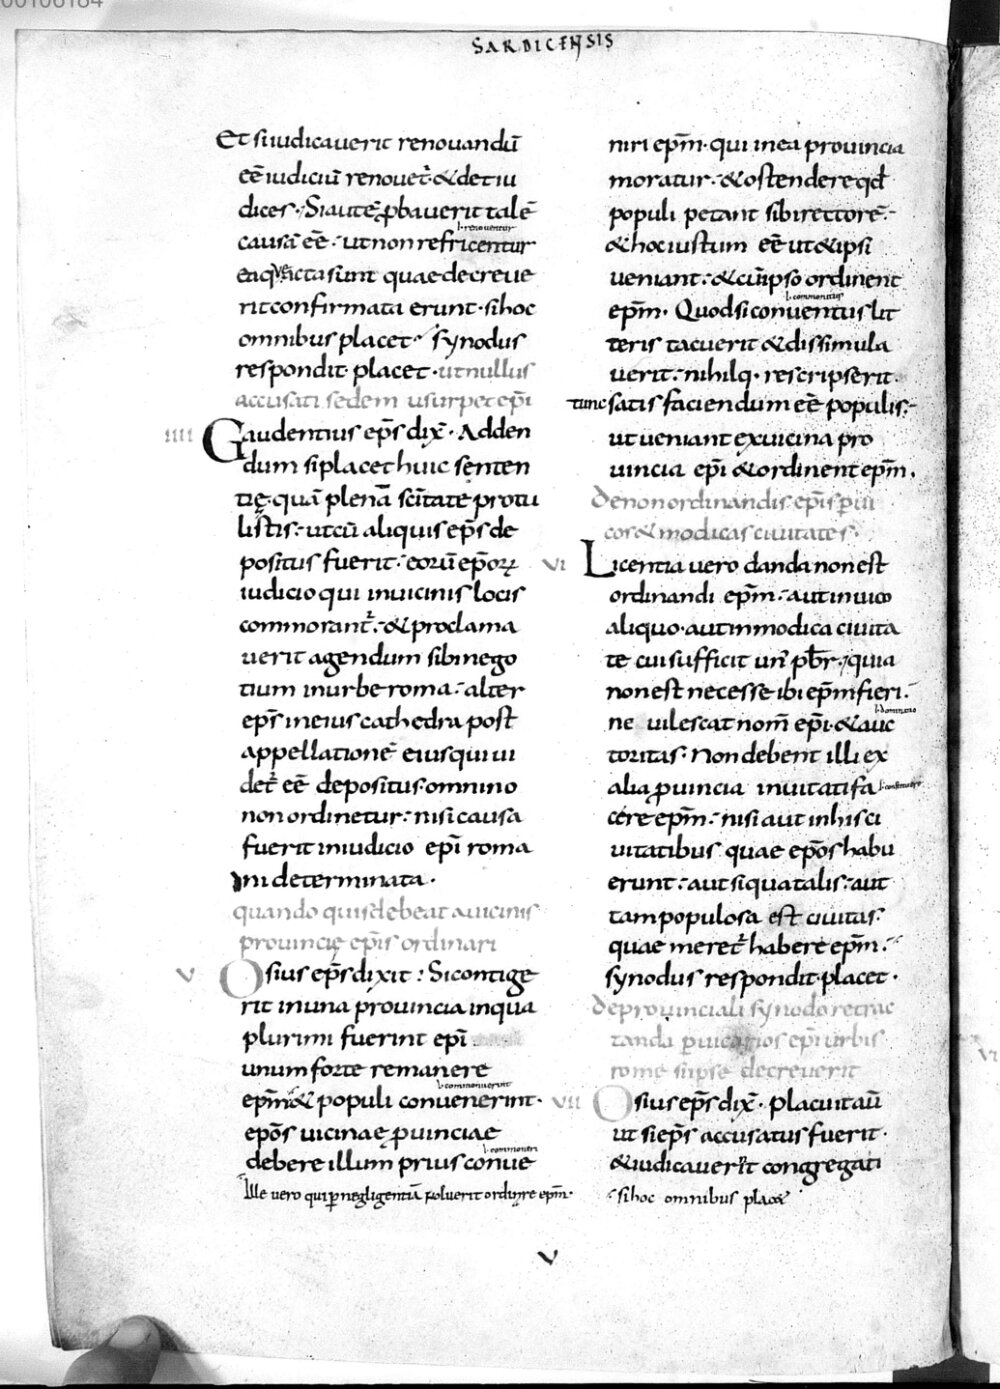 00106184
SARDICENSIS
Et si iudicauerit renouandū
eē iudiciū renouet᷑·& det iu
dices· Si autē ꝓbauerit talē
causā eē· ut non refricentur
l· renouentur
ea q̄ acta sunt quae decreue
rit confirmata erunt· si hoc
omnibus placet· synodus
respondit placet· ut nullus
accusati sedem usurpet ep̄i
IIII Gaudentius ep̄s dix̄· Adden
dum si placet huic senten
tię· quā plenā sc̄itate protu
listis· ut cū aliquis ep̄s de
positus fuerit· eorū ep̄oꝝ
iudicio qui in uicinis locis
commorant᷑·& proclama
uerit agendum sibi nego
tium in urbe roma· alter
ep̄s in eius cathedra post
appellationē eius qui ui
det᷑ eē depositus· omnino
non ordinetur· nisi causa
fuerit in iudicio ep̄i roma
ni determinata·
quando quis debeat a uicinis
prouincię ep̄is ordinari
V Osius ep̄s dixit: Si contige
rit in una prouincia in qua
plurimi fuerint ep̄i
unum forte remanere
l· commonuerint
ep̄m & populi conuenerint·
ep̄os uicinae ꝓuinciae
l· commoneri
debere illum prius conue
Ille uero qui ꝑ negligentiā noluerit ordinare ep̄m·
niri ep̄m· qui in ea prouincia
moratur·& ostendere qd̄
populi petant sibi rectorē·
& hoc iustum eē ut & ipsi
ueniant·& cū ipso ordinent
l· commonitus
ep̄m· Quod si conuentus lit
teris tacuerit & dissimula
uerit· nihilq· rescripserit·
tunc satis faciendum eē populis·
ut ueniant ex uicina pro
uincia ep̄i & ordinent ep̄m·
de non ordinandis ep̄is ꝑ ui
cos & modicas ciuitates·
VI Licentia uero danda non est
ordinandi ep̄m· aut in uico
aliquo· aut in modica ciuita
te cui sufficit un᷒ pb̄r· quia
non est necesse ibi ep̄m fieri·
l· dominatio
ne uilescat nom̄ ep̄i·& auc
toritas· Non debent illi ex
alia ꝓuincia inuitati fa
cere ep̄m· nisi aut in his ci
uitatibus quae ep̄os habu
erunt· aut si qua talis· aut
tam populosa est ciuitas·
quae meret᷑ habere ep̄m·
synodus respondit· placet·
de prouinciali synodo retrac
tanda ꝑ uicarios ep̄i urbis
rome si ipse decreuerit
VII Osius ep̄s dix̄· Placuit aū
ut si ep̄s accusatus fuerit·
& iudicauerit congregati
si hoc omnibus placet
V